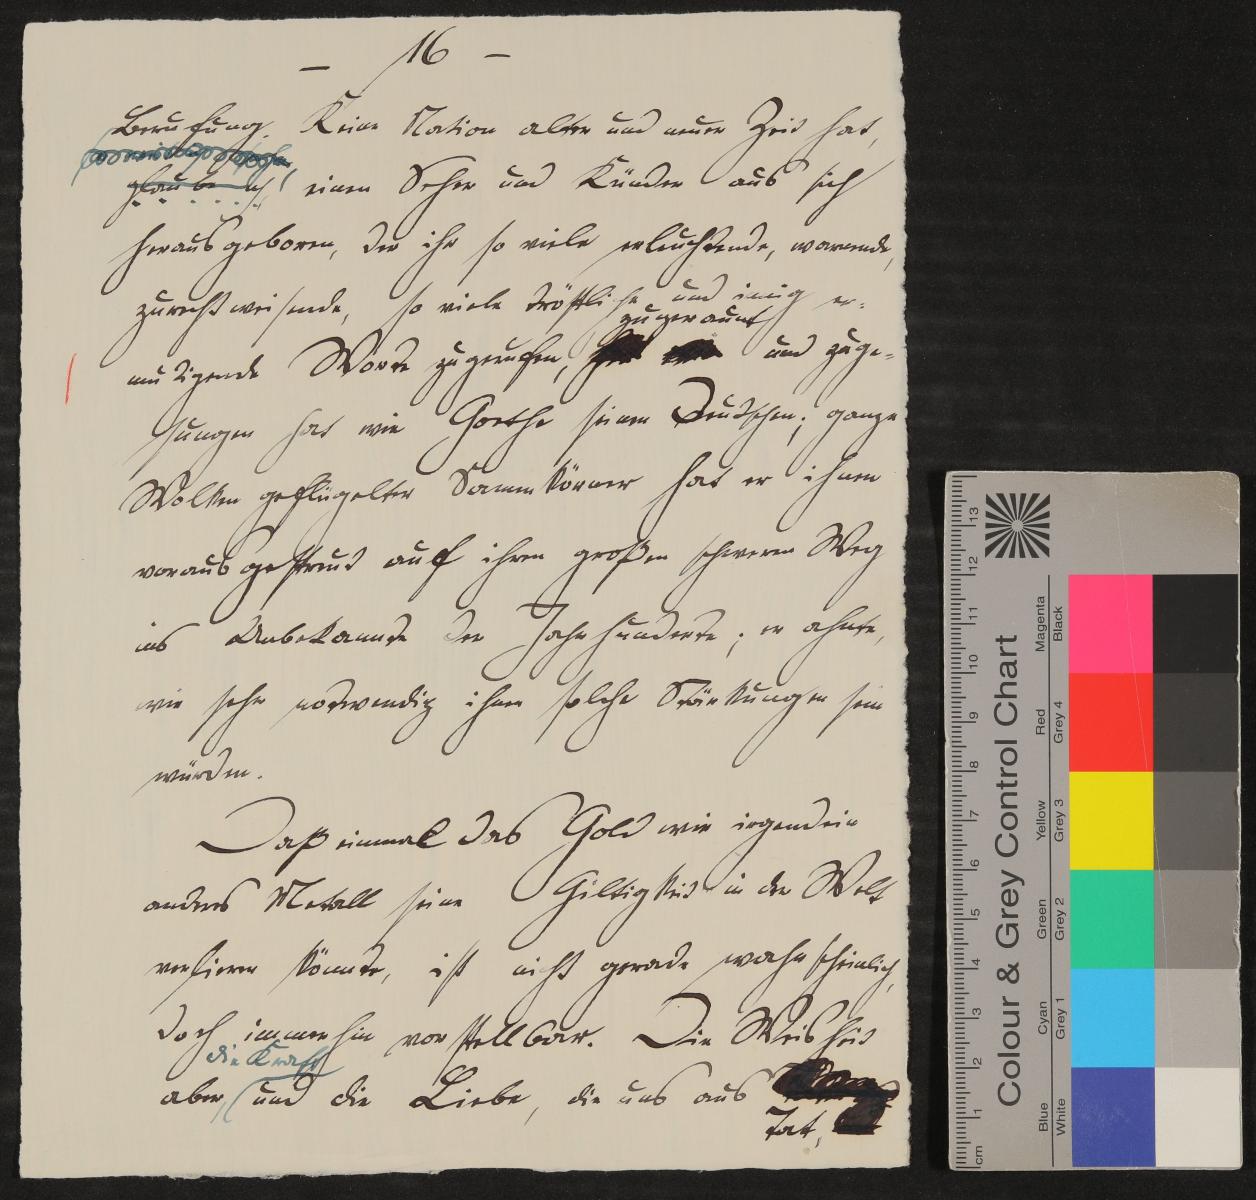 — 16 —
Berufung. Keine Nation alter und neuer Zeit hat,
glaube ich, einen Seher und Künder aus sich
herausgeboren, der ihr so viele erleuchtende, warnende,
zurechtweisende, so viele tröstliche und innig er-
zugeraunt
mutigende Worte zugerufen, und zuge-
sungen hat wie Goethe seinen Deutschen; ganze
Wolken geflügelter Samenkörner hat er ihnen
vorausgestreut auf ihren großen schweren Weg
ins Unbekannte der Jahrhunderte; er ahnte,
wie sehr notwendig ihnen solche Stärkungen sein
würden.
Daß einmal das Gold wie irgendein
anderes Metall seine Giltigkeit in der Welt
verlieren könnte, ist nicht gerade wahrscheinlich,
doch immerhin vorstellbar. Die Weisheit
die Kraft
aber, und die Liebe, die uns aus
Tat,
Colour & Grey Control Chart
Blue Cyan Green Yellow Red Magenta
White Grey 1 Grey 2 Grey 3 Grey 4 Black
cm 1 2 3 4 5 6 7 8 9 10 11 12 13